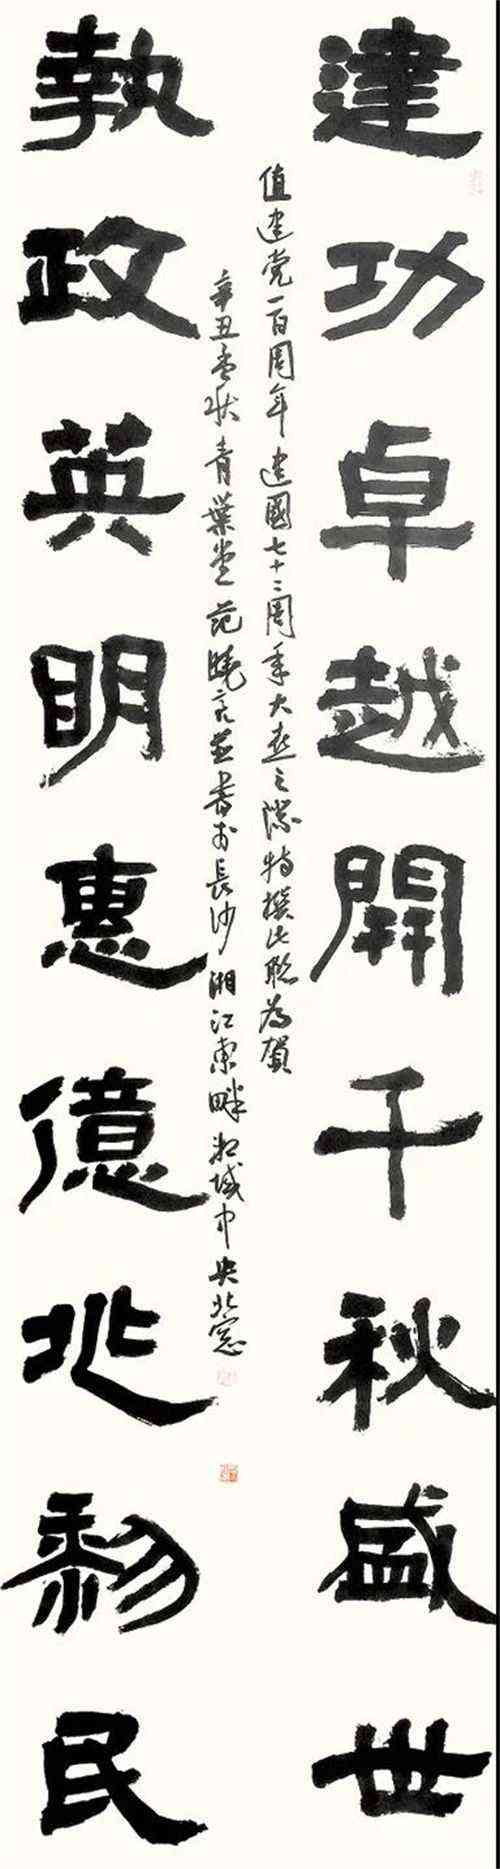 建功卓越開千秋盛世
值建党一百周年建國七十二周年大慶之際特撰此聯為賀
辛丑孟秋青葉堂范曉亮並書於長沙湘江東畔湘域中央北窓
執政英明惠億兆黎民